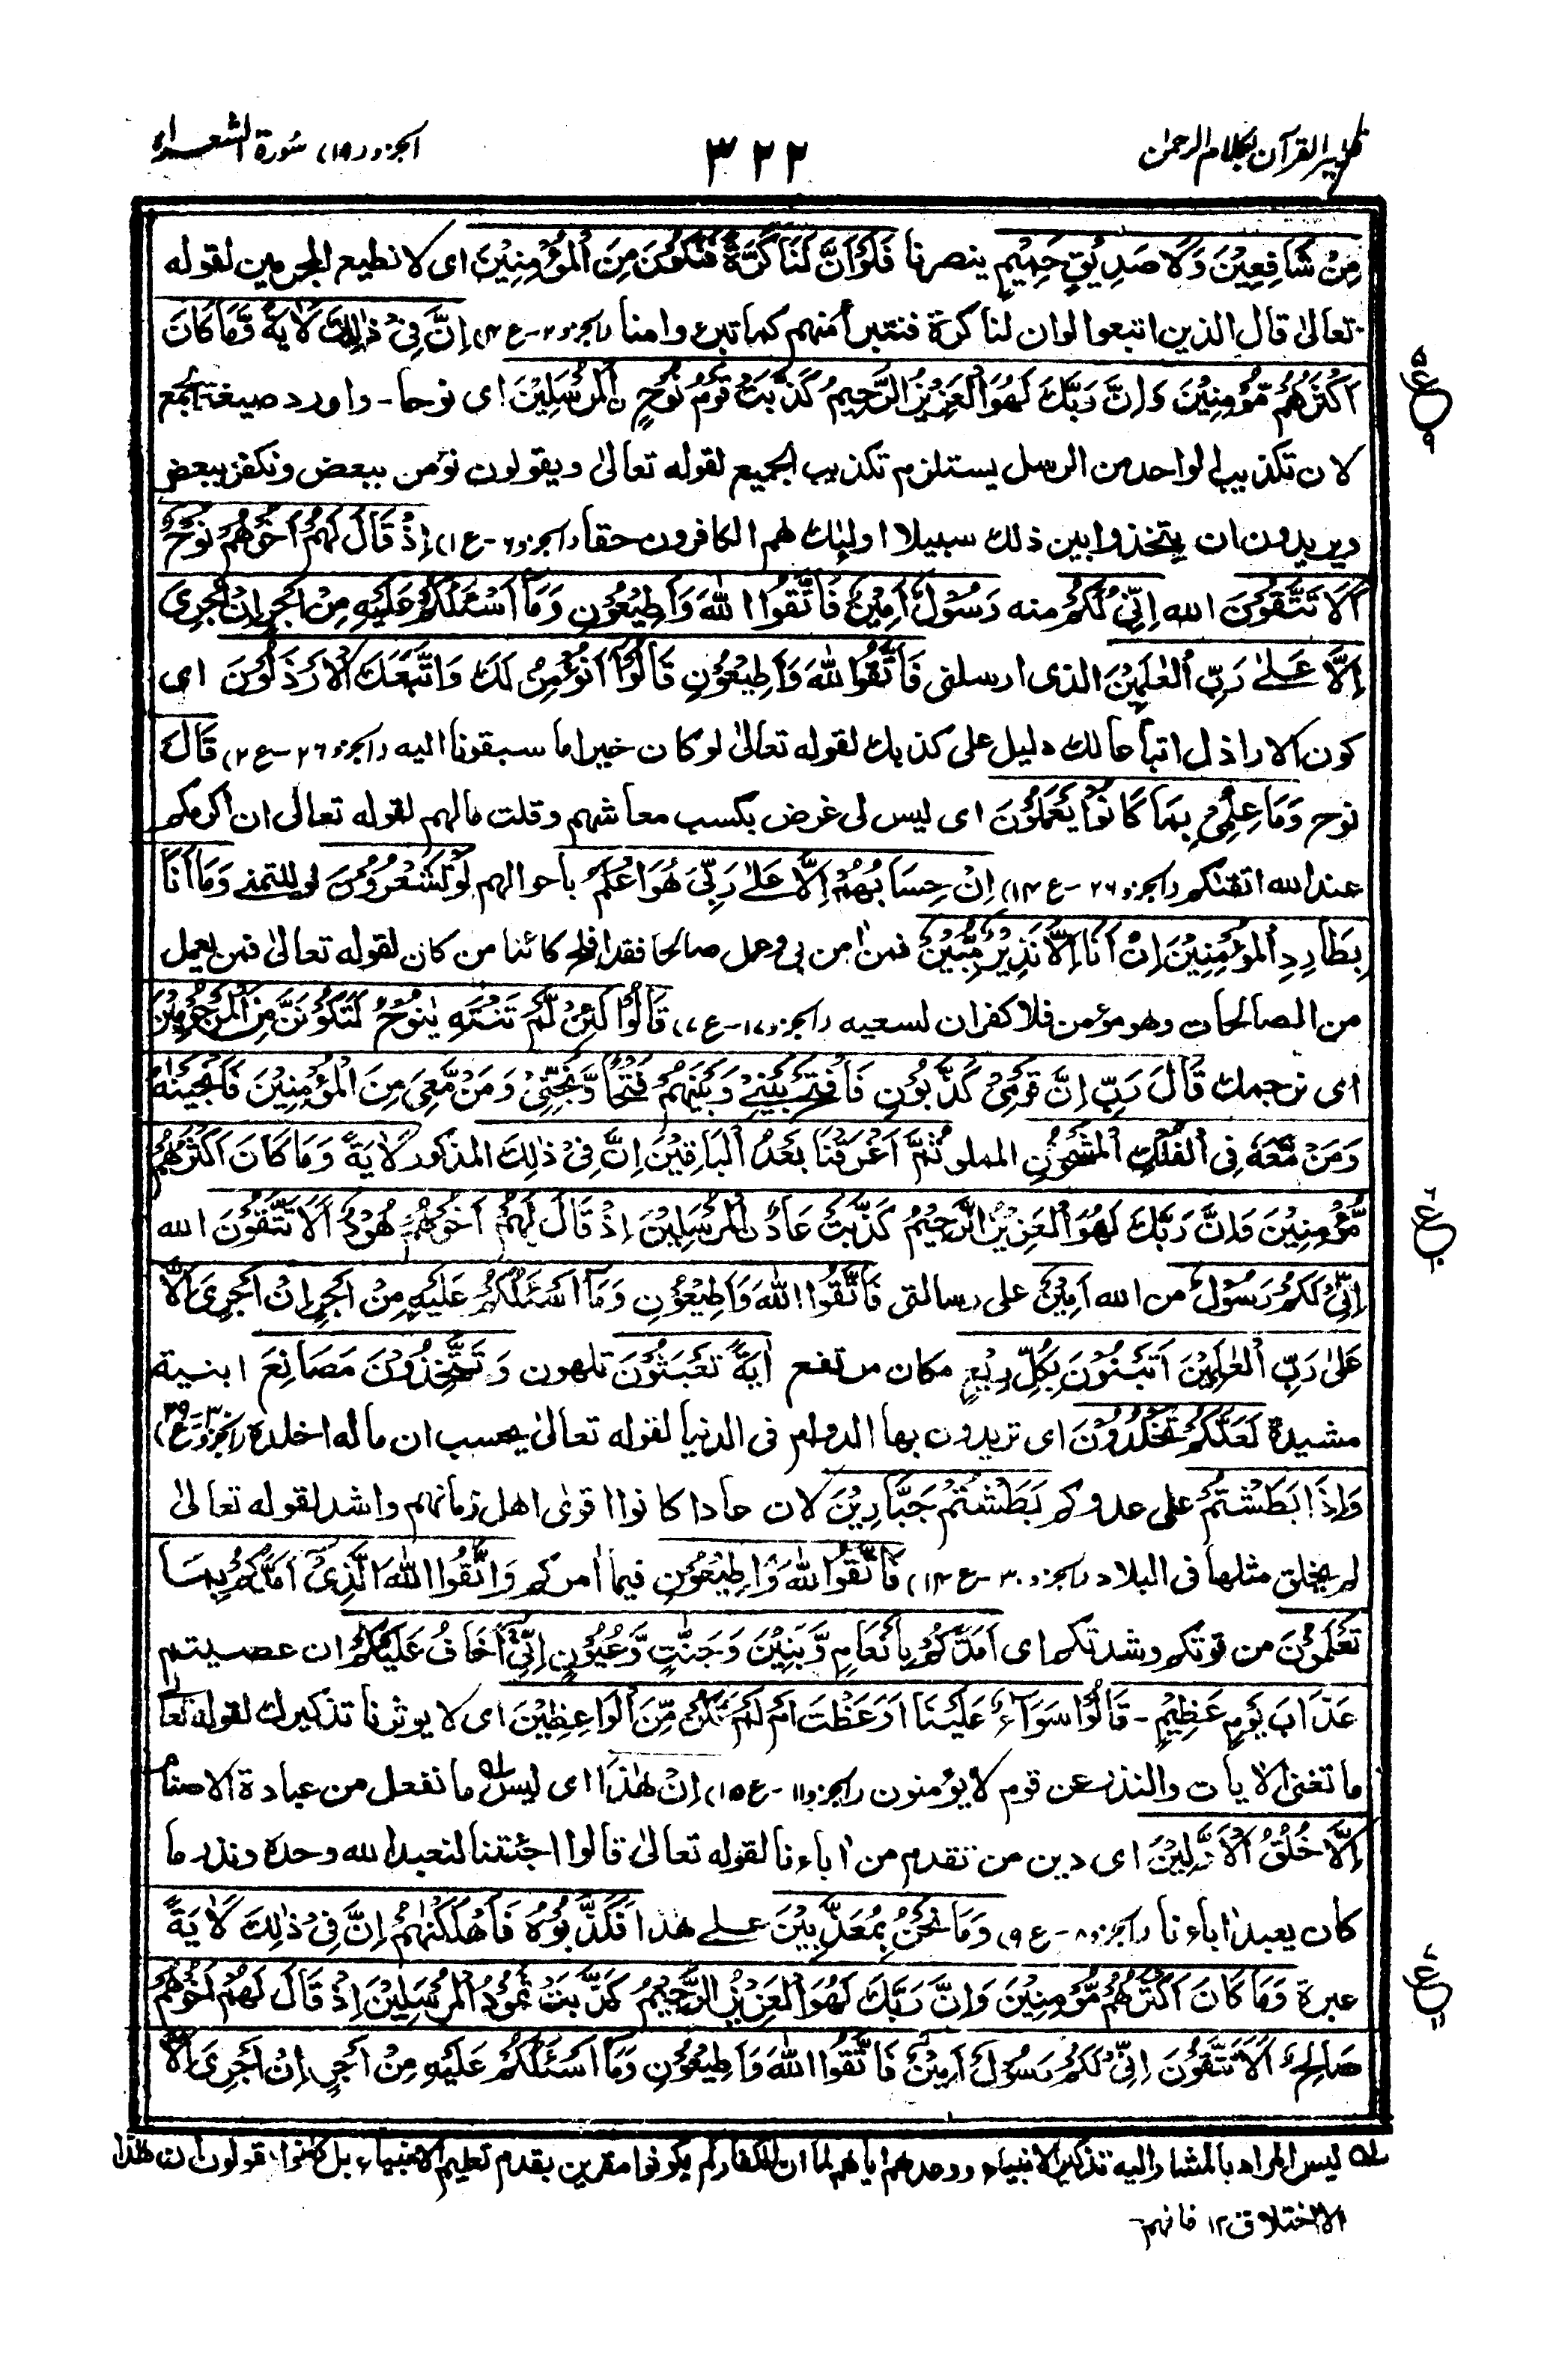 تفسير القرآن بكلام الرحمن
٣٢٢
الجزو (١٩) سورة الشعراء
مِنْ شَافِعِيْنَ وَلَا صَدِيْقٍ حَمِيْمٍ ينصرنا فَلَوْ اَنَّ لَنَا كَرَّةً فَنَكُوْنَ مِنَ الْمُؤْمِنِيْنَ اى لا نطيع المجرمين لقوله
تعالىٰ قال الذين اتبعوا لو ان لنا كرة فنتبرأ منهم كما تبرء وا منا (الجزو ٢-ع ٤) اِنَّ فِيْ ذٰلِكَ لَاٰيَةً وَّمَا كَانَ
اَكْثَرُهُمْ مُّؤْمِنِيْنَ وَاِنَّ رَبَّكَ لَهُوَ الْعَزِيْزُ الرَّحِيْمُ كَذَّبَتْ قَوْمُ نُوْحِ ۨ الْمُرْسَلِيْنَ اى نوحا - واورد صيغة الجمع
لان تكذيب الواحد من الرسل يستلزم تكذيب الجميع لقوله تعالىٰ ويقولون نؤمن ببعض ونكفر ببعض
ويريدون ان يتخذوا بين ذلك سبيلا اولٰئك هم الكافرون حقا (الجزو ٦-ع ١) اِذْ قَالَ لَهُمْ اَخُوْهُمْ نُوْحٌ
اَلَا تَتَّقُوْنَ الله اِنِّيْ لَكُمْ منه رَسُوْلٌ اَمِيْنٌ فَاتَّقُوا اللّٰهَ وَاَطِيْعُوْنِ وَمَا اَسْئَلُكُمْ عَلَيْهِ مِنْ اَجْرٍ اِنْ اَجْرِيَ
اِلَّا عَلٰى رَبِّ الْعٰلَمِيْنَ الذى ارسلنى فَاتَّقُوا اللّٰهَ وَاَطِيْعُوْنِ قَالُوْا اَنُؤْمِنُ لَكَ وَاتَّبَعَكَ الْاَرْذَلُوْنَ اى
كون الاراذل اتباعا لك دليل على كذبك لقوله تعالىٰ لو كان خيرا ما سبقونا اليه (الجزو ٢٦-ع ٢) قَالَ
نوح وَمَا عِلْمِيْ بِمَا كَانُوْا يَعْمَلُوْنَ اى ليس لى غرض بكسب معاشهم وقلت مالهم لقوله تعالى ان اكرمكم
عند الله اتقٰىكم (الجزو ٢٦-ع ١٤) اِنْ حِسَابُهُمْ اِلَّا عَلٰى رَبِّيْ هُوَ اَعْلَمُ باحوالهم لَوْ تَشْعُرُوْنَ لو للتمنى وَمَا اَنَا
بِطَارِدِ الْمُؤْمِنِيْنَ اِنْ اَنَا اِلَّا نَذِيْرٌ مُّبِيْنٌ فمن اٰمن بى وعمل صالحا فقد افلح كائنا من كان لقوله تعالىٰ فمن يعمل
من الصالحات وهو مؤمن فلا كفران لسعيه (الجزو ١٧-ع ٧) قَالُوْا لَئِنْ لَّمْ تَنْتَهِ يٰنُوْحُ لَتَكُوْنَنَّ مِنَ الْمَرْجُوْمِيْنَ
اى نرجمك قَالَ رَبِّ اِنَّ قَوْمِيْ كَذَّبُوْنِ فَافْتَحْ بَيْنِيْ وَبَيْنَهُمْ فَتْحًا وَّنَجِّنِيْ وَمَنْ مَّعِيَ مِنَ الْمُؤْمِنِيْنَ فَاَنْجَيْنٰهُ
وَمَنْ مَّعَهٗ فِى الْفُلْكِ الْمَشْحُوْنِ المملو ثُمَّ اَغْرَقْنَا بَعْدُ الْبَاقِيْنَ اِنَّ فِيْ ذٰلِكَ المذكور لَاٰيَةً وَمَا كَانَ اَكْثَرُهُمْ
مُّؤْمِنِيْنَ وَاِنَّ رَبَّكَ لَهُوَ الْعَزِيْزُ الرَّحِيْمُ كَذَّبَتْ عَادُ ۨ الْمُرْسَلِيْنَ اِذْ قَالَ لَهُمْ اَخُوْهُمْ هُوْدٌ اَلَا تَتَّقُوْنَ الله
اِنِّيْ لَكُمْ رَسُوْلٌ من الله اَمِيْنٌ على رسالتى فَاتَّقُوا اللّٰهَ وَاَطِيْعُوْنِ وَمَا اَسْئَلُكُمْ عَلَيْهِ مِنْ اَجْرٍ اِنْ اَجْرِيَ اِلَّا
عَلٰى رَبِّ الْعٰلَمِيْنَ اَتَبْنُوْنَ بِكُلِّ رِيْعٍ مكان مرتفع اٰيَةً تَعْبَثُوْنَ تلهون وَتَتَّخِذُوْنَ مَصَانِعَ ابنية
مشيدة لَعَلَّكُمْ تَخْلُدُوْنَ اى تريدون بها الدوام فى الدنيا لقوله تعالىٰ يحسب ان ماله اخلده (الجزو ٣٠-ع ٢٩)
وَاِذَا بَطَشْتُمْ على عدوكم بَطَشْتُمْ جَبَّارِيْنَ لان عادا كانوا اقوىٰ اهل زمانهم واشد لقوله تعالىٰ
لم يخلق مثلها فى البلاد (الجزو ٣٠-ع ١٤) فَاتَّقُوا اللّٰهَ وَاَطِيْعُوْنِ فيما اٰمركم وَاتَّقُوا اللّٰهَ الَّذِيْ اَمَدَّكُمْ بِمَا
تَعْلَمُوْنَ من قوتكم وشدتكم اى اَمَدَّكُمْ بِاَنْعَامٍ وَّبَنِيْنَ وَجَنّٰتٍ وَّعُيُوْنٍ اِنِّيْ اَخَافُ عَلَيْكُمْ ان عصيتم
عَذَابَ يَوْمٍ عَظِيْمٍ - قَالُوْا سَوَاءٌ عَلَيْنَا اَوَعَظْتَ اَمْ لَمْ تَكُنْ مِّنَ الْوَاعِظِيْنَ اى لا يوثرنا تذكيرك لقوله تعالىٰ
ما تغنى الاٰيات والنذر عن قوم لا يؤمنون (الجزو ١١-ع ١٥) اِنْ هٰذَا اى ليس ما نفعل من عبادة الاصنام
اِلَّا خُلُقُ الْاَوَّلِيْنَ اى دين من تقدم من اٰباءنا لقوله تعالىٰ قالوا اجئتنا لنعبد الله وحده ونذر ما
كان يعبد اٰباءنا (الجزو ٨-ع ٩) وَمَا نَحْنُ بِمُعَذَّبِيْنَ على هذا فَكَذَّبُوْهُ فَاَهْلَكْنٰهُمْ اِنَّ فِيْ ذٰلِكَ لَاٰيَةً
عبرة وَمَا كَانَ اَكْثَرُهُمْ مُّؤْمِنِيْنَ وَاِنَّ رَبَّكَ لَهُوَ الْعَزِيْزُ الرَّحِيْمُ كَذَّبَتْ ثَمُوْدُ الْمُرْسَلِيْنَ اِذْ قَالَ لَهُمْ اَخُوْهُمْ
صَالِحٌ اَلَا تَتَّقُوْنَ اِنِّيْ لَكُمْ رَسُوْلٌ اَمِيْنٌ فَاتَّقُوا اللّٰهَ وَاَطِيْعُوْنِ وَمَا اَسْئَلُكُمْ عَلَيْهِ مِنْ اَجْرٍ اِنْ اَجْرِيَ اِلَّا
ليس المراد بالمشار اليه تذكير الانبياء ووعدهم اياهم لما ان الكفار لم يكونوا مقرين بقدم تعليم الانبياء بل كانوا يقولون ان هٰذا
الا اختلاق ١٢ فافهم